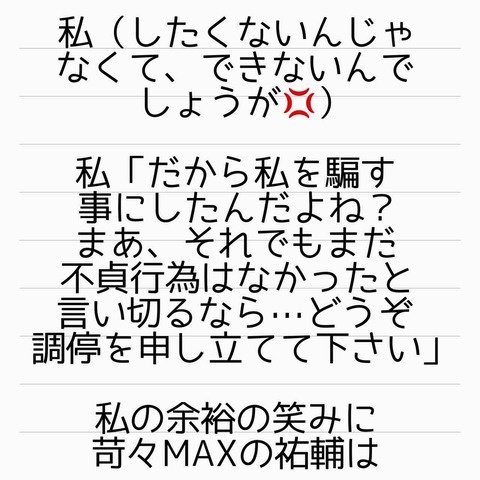 私（したくないんじゃ
なくて、できないんで
しょうが💢）
私「だから私を騙す
事にしたんだよね？
まあ、それでもまだ
不貞行為はなかったと
言い切るなら…どうぞ
調停を申し立てて下さい」
私の余裕の笑みに
苛々MAXの祐輔は